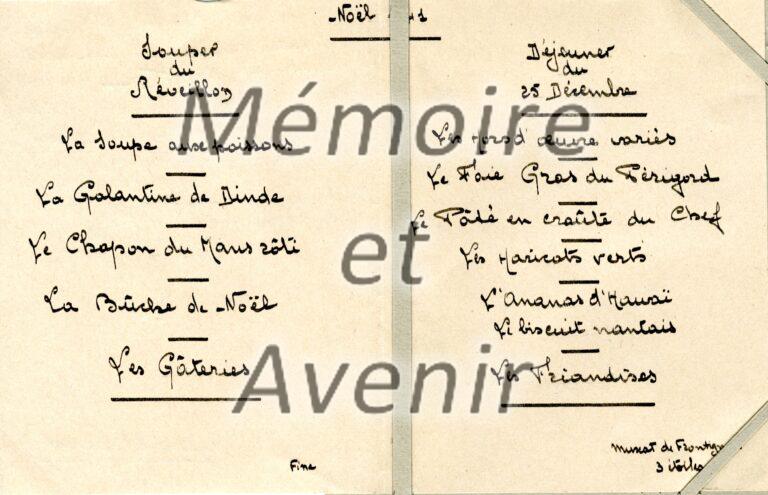 Noël
Souper
du
Réveillon
La Soupe aux poissons
La Galantine de Dinde
Le Chapon du Mans rôti
La Bûche de Noël
Les Gâteries
Fine
Déjeuner
du
25 Décembre
Les Hors d'œuvre variés
Le Foie Gras du Périgord
Le Pâté en croûte du Chef
Les Haricots verts
L'Ananas d'Hawaï
Le biscuit nantais
Les Friandises
Muscat de
3 étoiles
Mémoire
et
Avenir